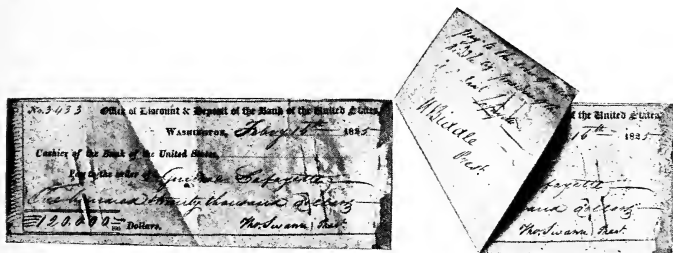 No. 3433 Office of Discount & Deposit of the Bank of the United States,
WASHINGTON, Feby 15th 1825
Cashier of the Bank of the United States,
Pay to the order of General Lafayette
One hundred twenty thousand dollars
$120,000 Dollars.
Tho. Swann, Prest.
Pay to the
N Biddle
Prest.
of the United States.
16th 1825
Lafayette
dollars
Tho. Swann, Prest.